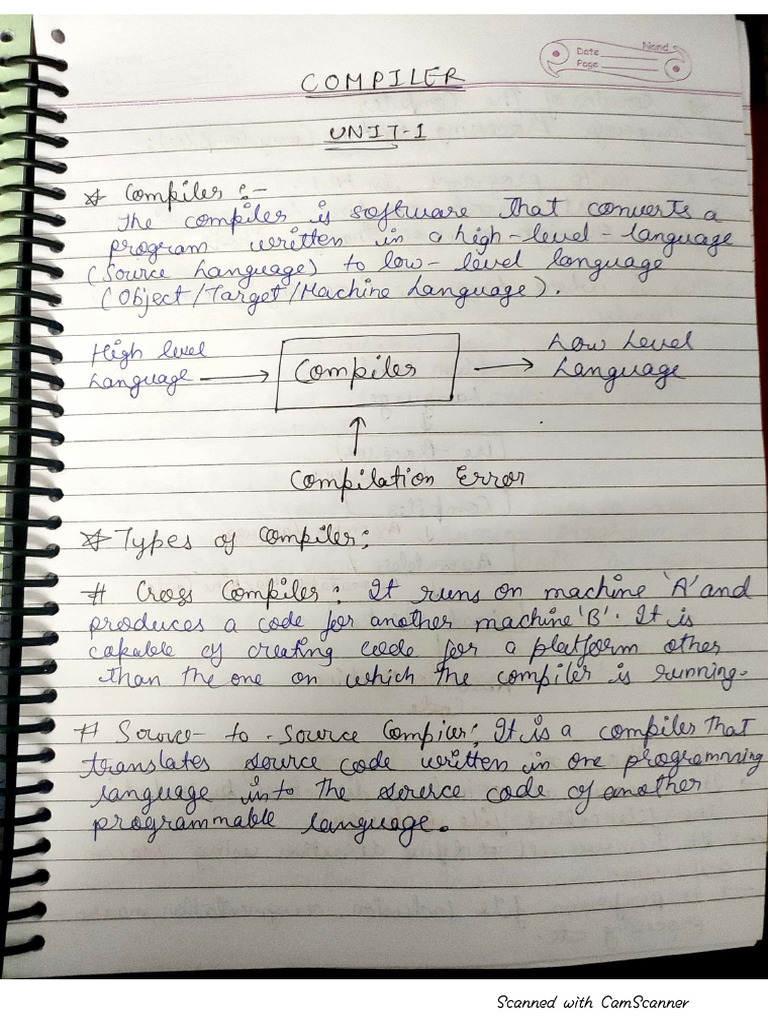 Date Nand
Page
COMPILER
UNIT-I
* Compiler :-
The compiler is software that converts a
program written in a high-level-language
(Source Language) to low-level language
(Object/Target/Machine Language).
High level Language
Compiler
Low Level Language
Compilation Error
* Types of Compiler:
# Cross Compiler: It runs on machine 'A' and
produces a code for another machine 'B'. It is
capable of creating code for a platform other
than the one on which the compiler is running.
# Source-to-Source Compiler: It is a compiler that
translates source code written in one programming
language into the source code of another
programmable language.
Scanned with CamScanner